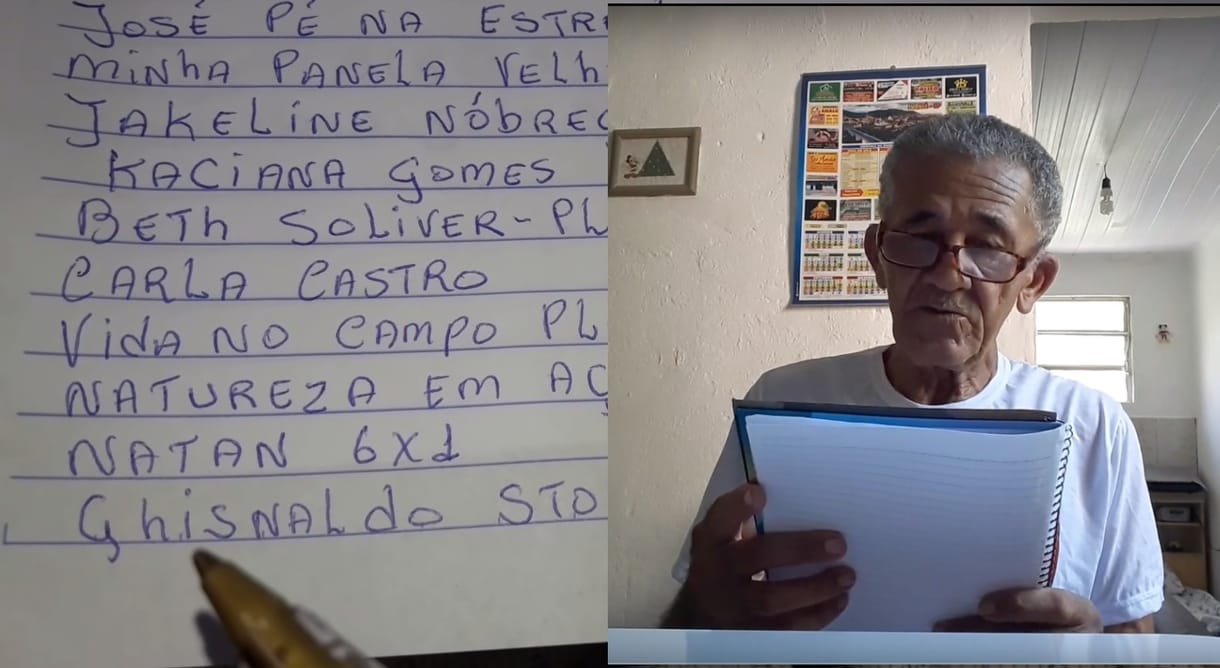 JOSÉ PÉ NA ESTR
MINHA PANELA VELH
JAKELINE NÓBREG
KACIANA GOMES
BETH SOLIVER-PL
CARLA CASTRO
VIDA NO CAMPO PL
NATUREZA EM AÇ
NATAN 6X1
GHISNALDO STO